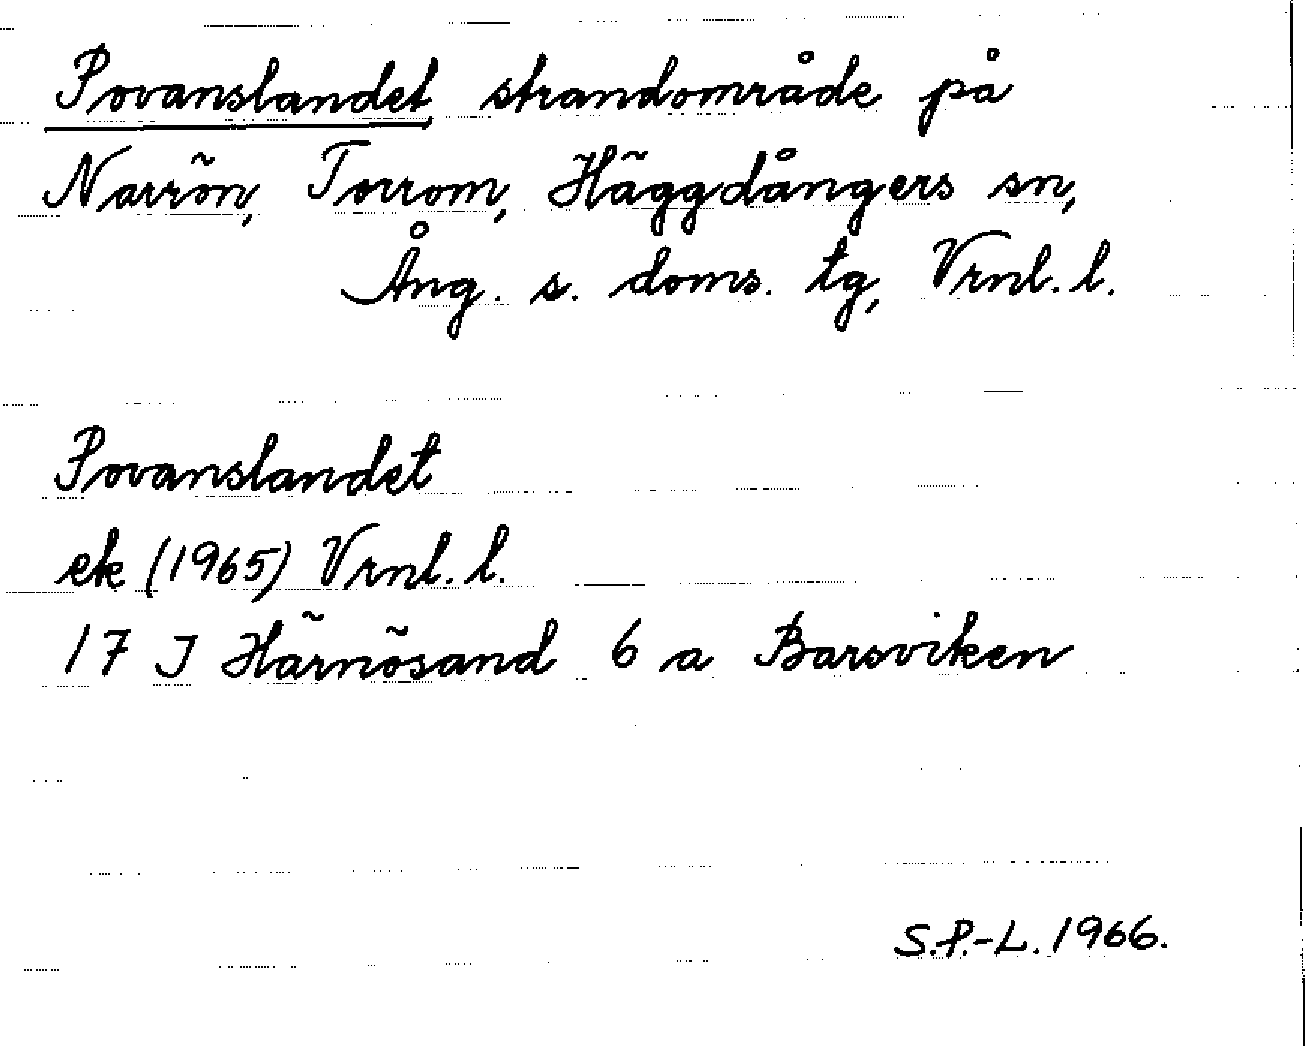 Provanslandet strandområde på
Narrön, Torrom, Häggdångers sn,
Ång. s. doms. tg, Vrnl. l.
Provanslandet
ek (1965) Vrnl. l.
17 J Härnösand 6 a Barsviken
S.P.-L. 1966.